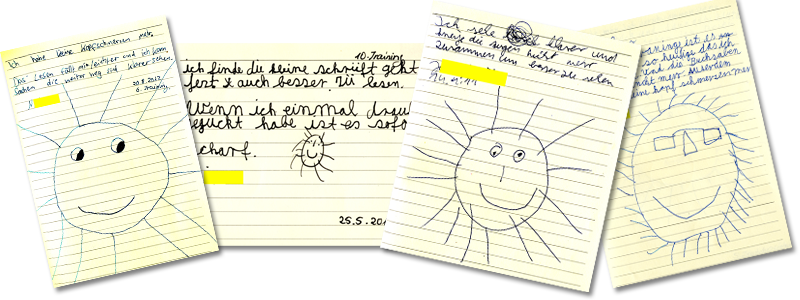 Ich habe keine Kopfschmerzen mehr.
Das Lesen fällt mir leichter und ich kann
Sachen die weiter weg sind klarer sehen.
20.8.2012
6. Training
10. Training
ich finde die kleine schrift geht
fest auch besser zu lesen.
Wenn ich einmal drauf
geguckt habe ist es sofo
charf.
25.5.201
Ich sehe klarer und
kneife die augen nicht merr
zusammen um besser zu sehen
ist es so
das ich
die Buchsaben
nicht merr
eine kopf schmerzen mer